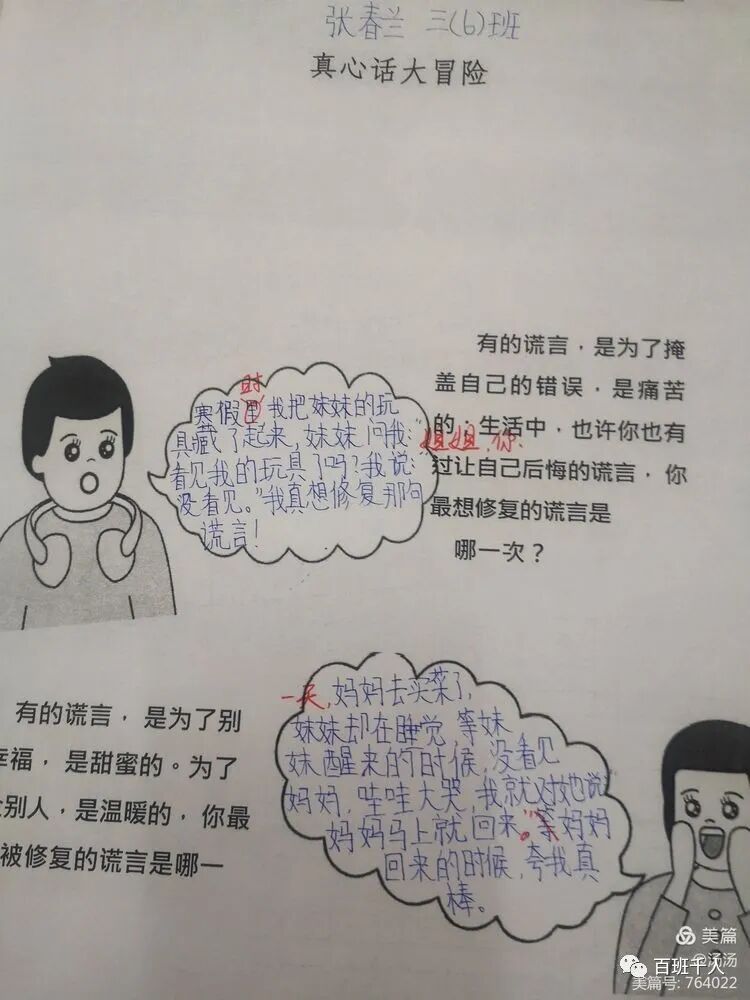 张春兰 三(6)班
真心话大冒险
有的谎言，是为了掩
盖自己的错误，是痛苦
的，生活中，也许你也有
过让自己后悔的谎言，你
最想修复的谎言是
哪一次？
时
寒假里我把妹妹的玩
具藏了起来，妹妹问我：
姐姐，你
看见我的玩具了吗？我说：
没看见。”我真想修复那句
谎言！
有的谎言，是为了别
幸福，是甜蜜的。为了
别人，是温暖的，你最
被修复的谎言是哪一
一天，妈妈去买菜了，
妹妹却在睡觉，等妹
妹醒来的时候，没看见
妈妈，哇哇大哭，我就对她说
妈妈马上就回来。”等妈妈
回来的时候，夸我真
棒。
美篇
@汤汤
百班千人
美篇号: 764022